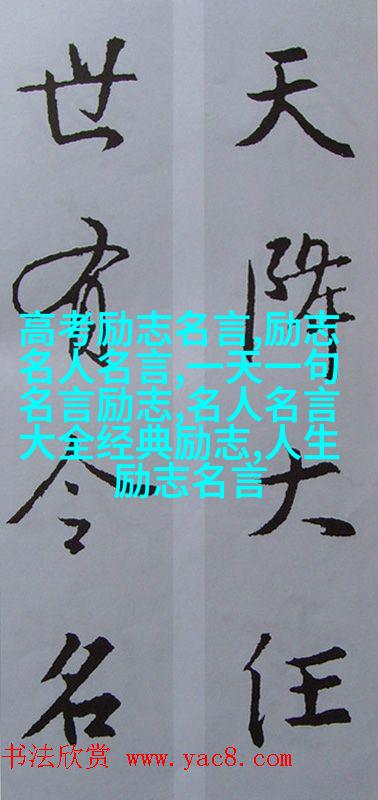 天降大任
世有令名
高考励志名言,励志
名人名言,一天一句
名言励志,名人名言
大全经典励志,人生
励志名言
书法欣赏 www.yac8.com